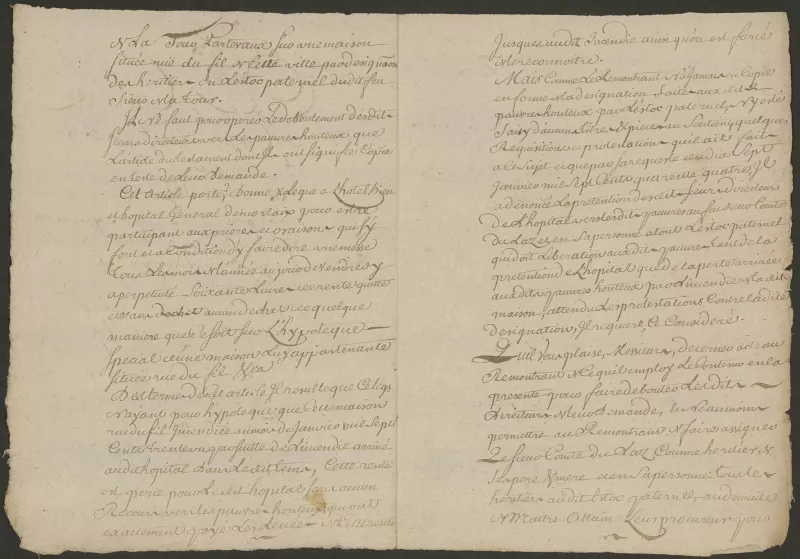 La Tour Partevaux sur une maison
située rue du fil N Cette ville par designation
des heritiers en L'estoc paternel dudit feu
Sieur N La tour.
Il Ne faut pour operer Le Deboutement desdits
sieurs directeurs vers Les pauvres honteux que
L'article du testament dont Ils ont signifié Copie
en teste de Leur Demande.
Cet Article porte, Donne & Legue a L'hotel Dieu
et hopital General de morlaix pour entre
participant aux prieres et oraisons que s'y
font et a Condition d'y faire dire une messe
tous Les mois N L'année au prio de Vendredy
a perpetuité Soixante Livres de rente quitte
et sans dechet quand a dechet ce quelque
maniere que ce soit sur L'hypoteque
special et une maison Luy appartenante
située rue du fil &ca
Des termes de cet article Il resulte que Ce legs
N'ayant pour hypoteque que Cette maison
rue du fil Incendiée au mois de Janvier mil sept
Cent trente N par suitte de L'incendie arrivé
audit hopital dans Ledit tems, Cette rente
a perie pour Ledit hopital sans aucun
Recours vers Les pauvres honteux qui ont
exactement payé Les Levées N
Jusques audit Incendie ainsi qu'on est forcé
N Le reconnoitre.
Mais Comme Le Remontrant N'a Jamais eu Copie
en forme N La designation faite aux dits
pauvres honteux par L'estoc paternel, N'y esté
saisy d'aucun titre & pieces au Soutien, quelques
Requisitions et protestation qu'il ait fait
a Ce Sujet et que par sa requeste du dix Sept
Janvier mil Sept Cents quarente quatre, Il
a denoncé La pretention desdits sieurs Directeurs
De L'hopital vers Lesdits pauvres au feu sieur Comte
du Laz es en sa personne a tout L'estoc paternel
qui doit Liberation auxdits pauvres tant de la
pretention de L'hopital que de la perte arrivée
auxdits pauvres honteux par L'incendie N Ladite
maison, attendu Les protestations Contre Ladite
Designation, Il requiert, Ce Consideré
Qu'il Vous plaise, Messieurs, decerner acte au
Remontrant N Ce qu'il employe Le Contenu en la
presente pour faire debouter Lesdits
Directeurs N Leur Demande, &
permettre au Remontrant N faire assigner
Le sieur Comte du Laz Comme heritier N
ses pere & mere et en sa personne tout le
heritier audit Estoc paternel, au domicile
N Maitre Leur procureur pour